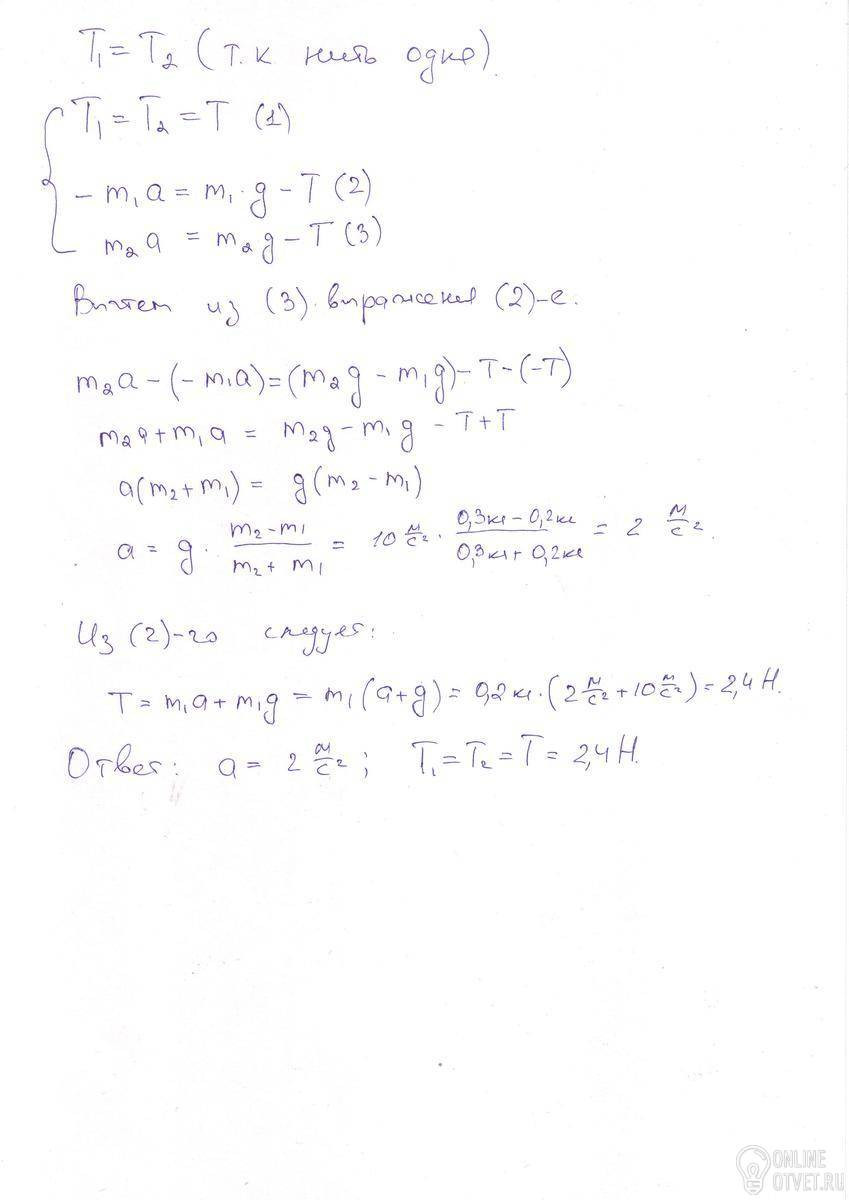 T₁ = T₂ (т.к нить одна).
T₁ = T₂ = T (1)
- m₁a = m₁·g - T (2)
m₂a = m₂g - T (3)
Вычтем из (3) выражения (2)-е.
m₂a - (- m₁a) = (m₂g - m₁g) - T - (-T)
m₂a + m₁a = m₂g - m₁g - T + T
a(m₂ + m₁) = g(m₂ - m₁)
a = g · (m₂ - m₁)/(m₂ + m₁) = 10 м/с² · (0,3кг - 0,2кг)/(0,3кг + 0,2кг) = 2 м/с².
Из (2)-го следует:
T = m₁a + m₁g = m₁(a + g) = 0,2кг·(2 м/с² + 10 м/с²) = 2,4 Н.
Ответ: a = 2 м/с²; T₁ = T₂ = T = 2,4 Н.
ONLINE
OTVET.RU